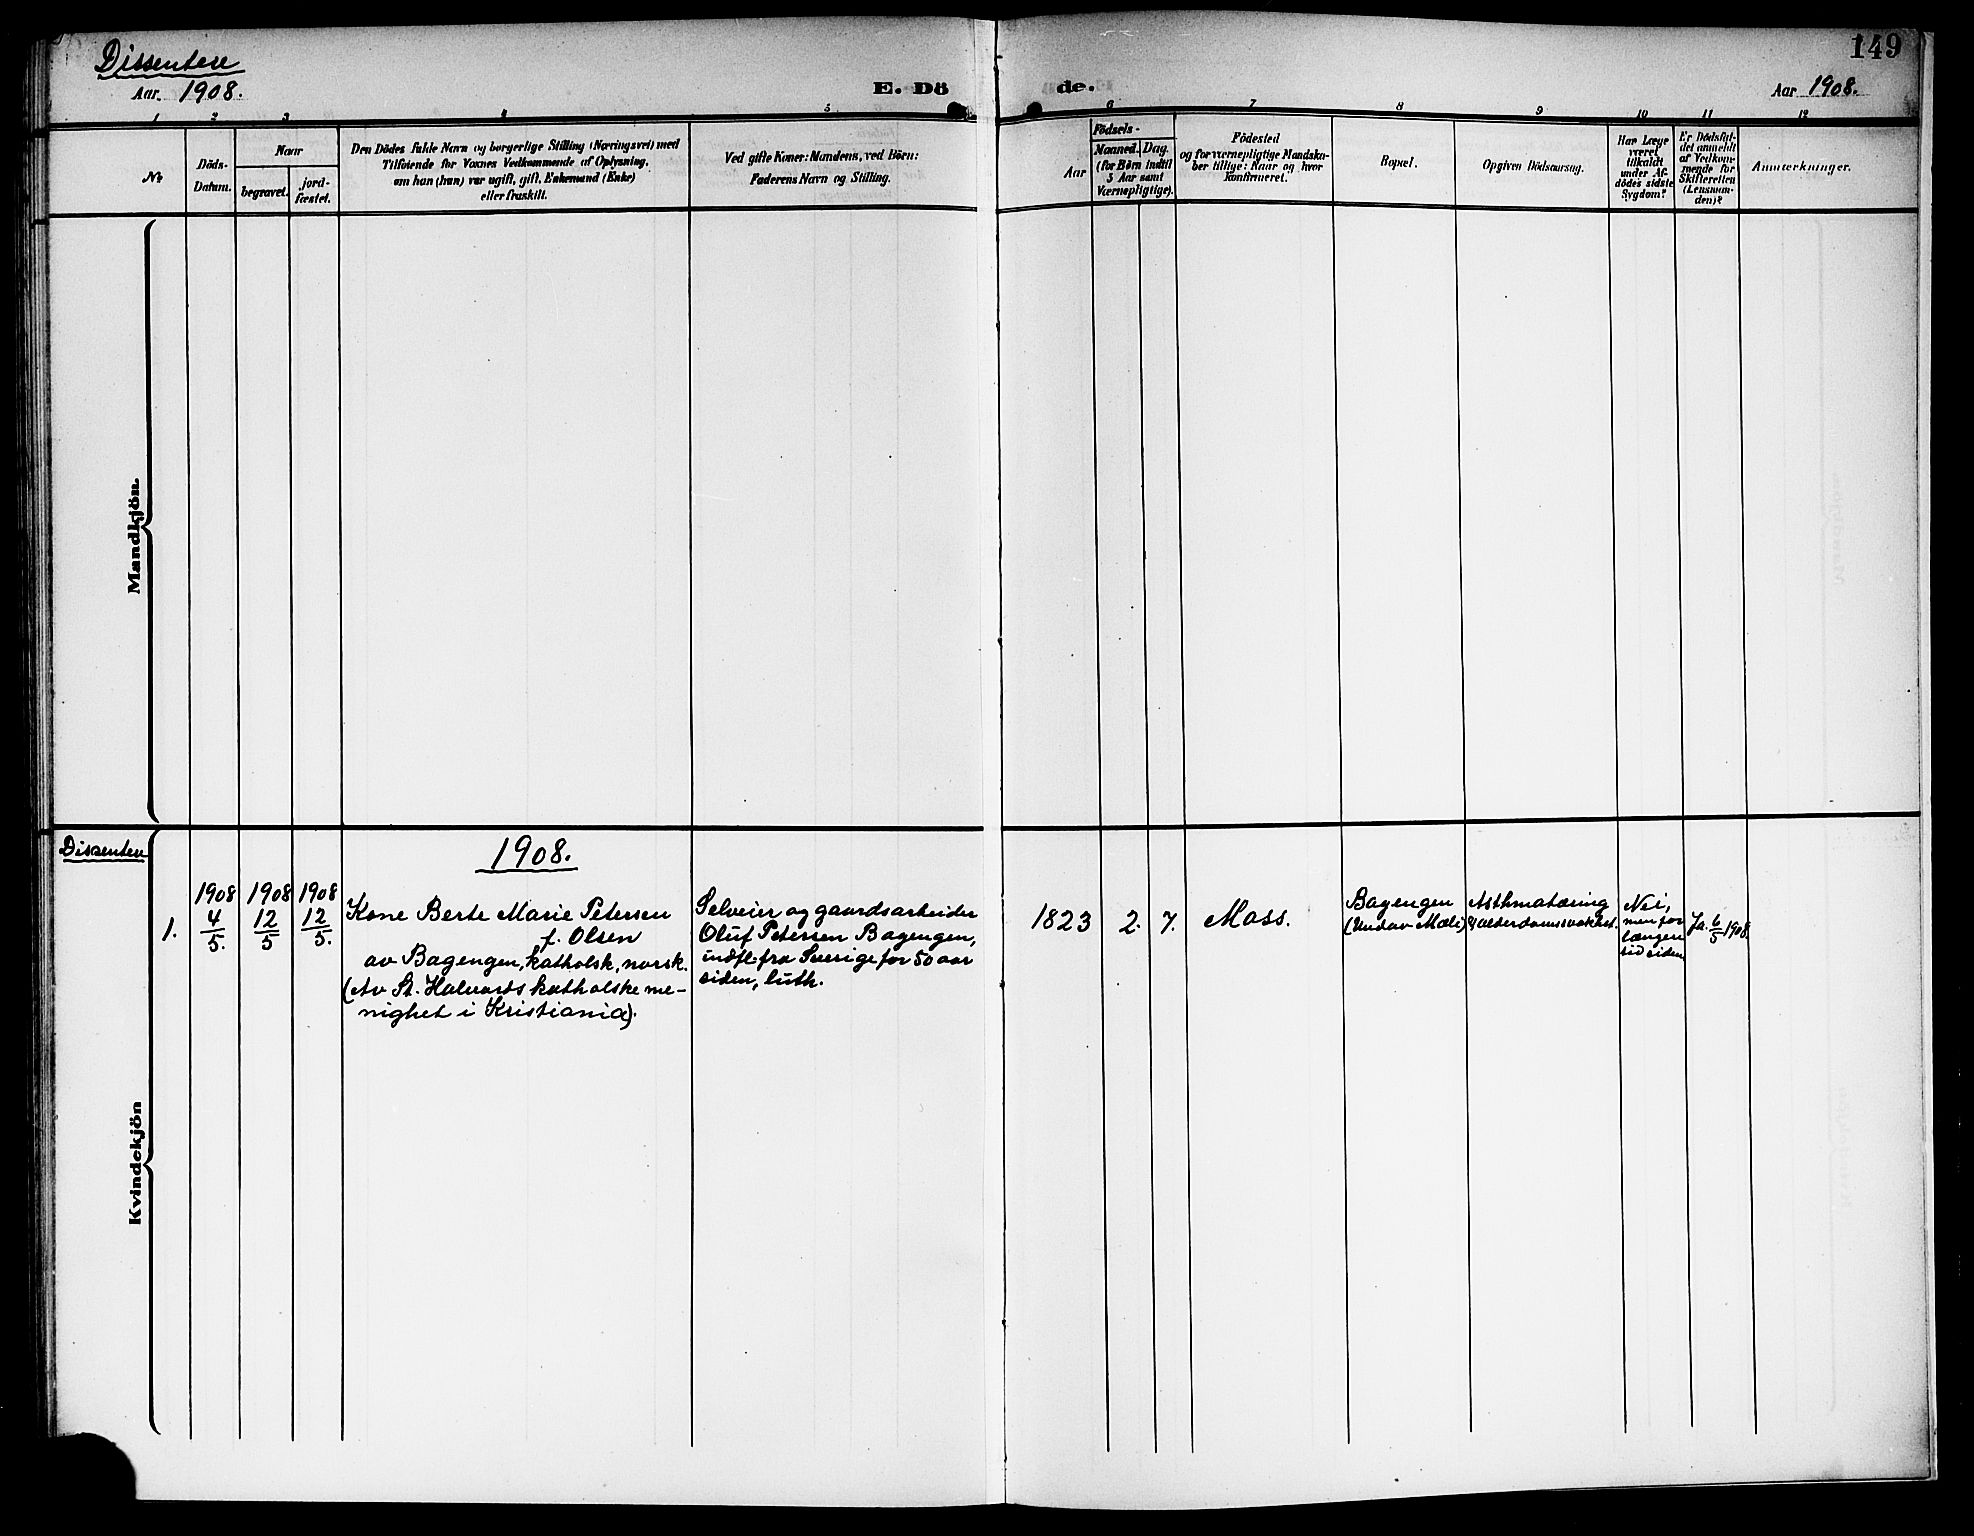 Dissentere
Aar 1908.
E. Dö
de.
149
Aar 1908.
1
2
3
4
5
6
7
8
9
10
11
12
Nr
Döds-
Datum.
Naar
begravet.
jord-
fæstet.
Den Dödes fulde Navn og borgerlige Stilling (Næringsvei) med
Tilföiende for Voxnes Vedkommende af Oplysning,
om han (hun) var ugift, gift, Enkemand (Enke)
eller fraskilt.
Ved gifte Koner: Mandens, ved Börn:
Faderens Navn og Stilling.
Aar
Födsels-
Maaned.
Dag.
(for Börn indtil
5 Aar samt
Værnepligtige).
Födested
og for værnepligtige Mandska-
ber tillige: Naar og hvor
konfirmeret.
Bopæl.
Opgiven Dödsaarsag.
Har Læge
været
tilkaldt
under Af-
dödes sidste
Sygdom?
Er Dödsfal-
det anmeldt
af Vedkom-
mende for
Skifteretten
(Lensman-
den)?
Anmærkninger.
Mandkjön.
Dissentere
1908.
1.
1908
4/5.
1908
12/5
1908
12/5.
Kone Berte Marie Petersen
f. Olsen
av Bagengen, katholsk, norsk.
(Av St. Halvards katholske me-
nighet i Kristiania).
Selveier og gaardsarbeider
Oluf Petersen Bagengen,
indfl. fra Sverige for 50 aar
siden, luth.
1823
2.
7.
Moss.
Bagengen
(Undav Mæli)
Asthmatæring
& alderdomssvakhet.
Nei,
men for
længere
tid siden
Ja. 6/5 1908.
Kvindekjön